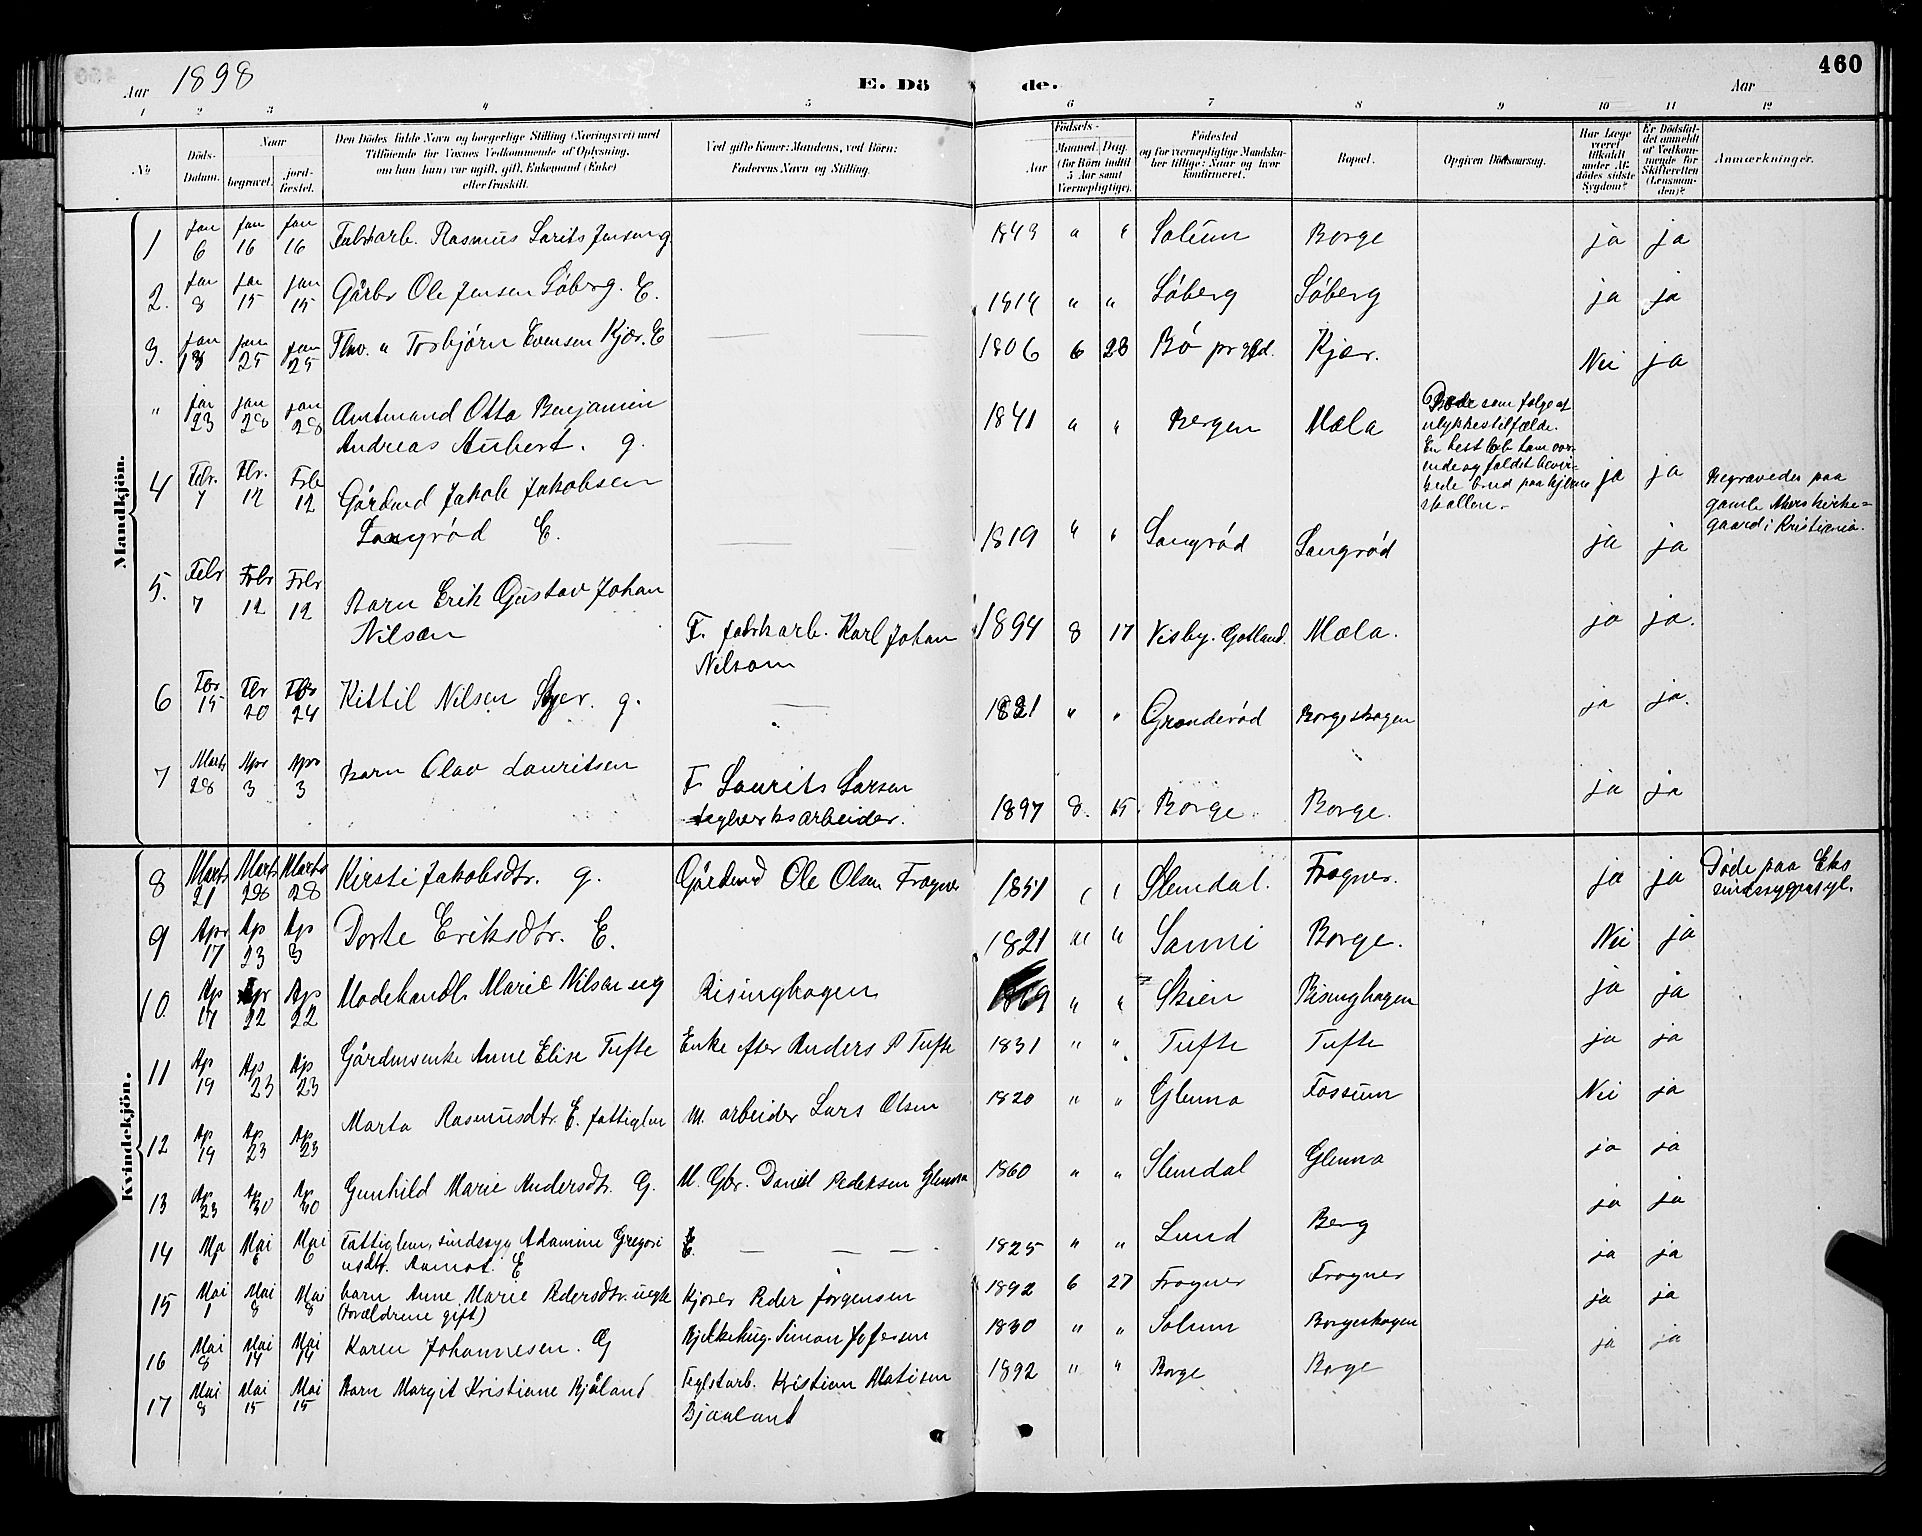 Aar 1898 E. Dö de. Aar 460
1 2 3 4 5 6 7 8 9 10 11 12
No Döds-Datum. Naar begravet. jord-fæstet. Den Dödes fulde Navn og borgerlige Stilling (Næringsvei) med Tilföiende for Voxnes Vedkommende af Oplysning, om han (hun) var ugift, gift, Enkemand (Enke) eller fraskilt. Ved gifte Koner: Mandens, ved Börn: Faderens Navn og Stilling. Födsels- Aar Maaned. Dag. (for Börn indtil 5 Aar samt Værnepligtige). Födested og for værnepligtige Mandskaber tillige: Naar og hvor konfirmeret. Bopæl. Opgiven Dödsaarsag. Har Læge været tilkaldt under Afdödes sidste Sygdom? Er Dödsfaldet anmeldt af Vedkommende for Skifteretten (Lensmanden)? Anmærkninger.
Mandkjön.
1 Jan 6 Jan 16 Jan 16 Fabrkarb. Rasmus Larits Jensen g 1843 " " Solum Borge ja ja
2. Jan 8 Jan 15 Jan 15 Gårbr Ole Jensen Söberg. E. 1814 " " Söberg Söberg ja ja
3. Jan 18 Jan 25 Jan 25 Torbjörn Evensen Kjær. E 1806 6 28 Bö Kjær. Nei ja
" Jan 23 Jan 28 Jan 28 Amtmand Otto Benjamin
Andreas Aubert. g. 1841 " " Bergen Mæla
Döde som fölge af
ulykkestilfælde.
En hest löb ham over-
ende og faldet bevir-
kede brud paa hjerne
skallen. ja ja Begravedes paa
gamle Akers kirke=
gaard i Kristiania.
4 Febr. 7 Febr. 12 Febr 12 Gårdmd Jakob Jakobsen
Langröd E. 1819 " " Langröd Langröd ja ja
5. Febr 7 Febr 12 Febr 12 Barn Erik Gustav Johan
Nilsen F. fabrkarb. Karl Johan
Nilsom 1894 8 17 Visby. Gotland. Mæla. ja ja.
6 Febr 15 Febr 20 Febr 24 Kittil Nilsen g. 1821 " " Granderöd Borgeskogen ja ja.
7 Marts 28 Apr 3 Apr 3 Barn Olav Lauritsen F Laurits Larsen
teglverksarbeider. 1897 8. 15 Borge. Borge. ja ja
Kvindekjön.
8 Marts 21 Marts 28 Marts 28 Kirsti Jakobsdtr. g. Gårdmd Ole Olsen Frogner 1851 " " Slemdal. Frogner. ja ja Döde paa Eks
sindssygeasyl.
9 Apr 17 Ap 23 Ap 3 Dorte Eriksdtr. E. 1821 " " Sanni Borge. Nei ja
10. Ap 17 Apr 22 Ap 22 Modehandl. Marie Nilsen ug Risinghagen 1869 " " Skien Risinghagen ja ja
11 Ap 19 Ap 23 Ap 23 Gårdmsenke Anne Elise Tufte Enke efter Anders P Tufte 1831 " " Tufte Tufte ja ja
12 Ap 19 Ap 23 Ap 23 Marta Rasmusdtr. E. fattiglem M. arbeider Lars Olsen 1820 " " Glenna Fossum Nei ja
13 Ap 23 Ap 30 Ap 30 Gunhild Marie Andersdtr. G. M. Gbr. Daniel Pedersen Glenna 1860 " " Slemdal Glenna ja ja
14 Mai Mai 6 Mai 6 Fattiglem, sindssyg Adamine Gregori
usdtr. E E. 1825 " " Lund Berg ja ja
15 Mai 1 Mai 8 Mai 8 barn Anne Marie Pedersdtr. uegte
(Forældrene gift) Kjörer Peder Jörgensen 1892 6 27 Frogner Frogner ja ja
16 Mai 8 Mai 14 Mai 14 Karen Johannesen. G Simon 1830 " " Solum Borgeskogen ja ja
17 Mai 8 Mai 15 Mai 15 Barn Margit Kristiane Bjåland Teglstarb. Kristian Matisen
Bjaaland 1892 " " Borge Borge ja ja